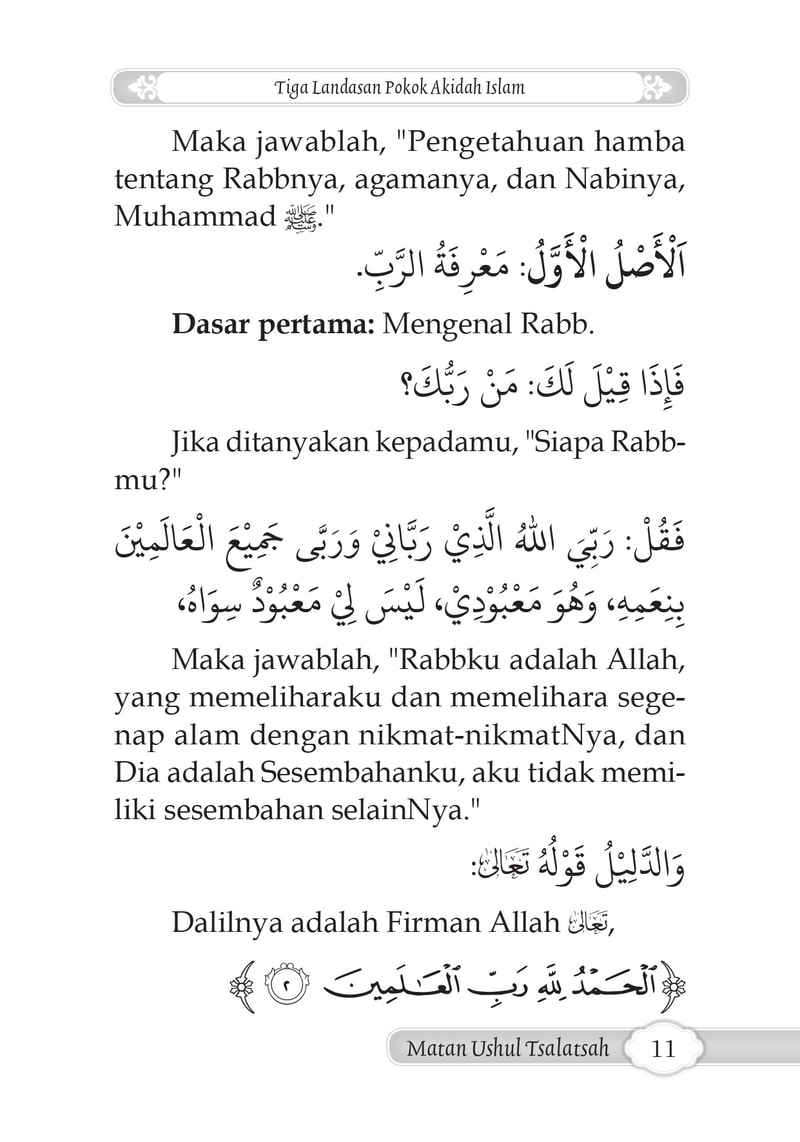 Tiga Landasan Pokok Akidah Islam
Maka jawablah, "Pengetahuan hamba
tentang Rabbnya, agamanya, dan Nabinya,
Muhammad ﷺ."
اَلْأَصْلُ الْأَوَّلُ: مَعْرِفَةُ الرَّبِّ.
Dasar pertama: Mengenal Rabb.
فَإِذَا قِيْلَ لَكَ: مَنْ رَبُّكَ؟
Jika ditanyakan kepadamu, "Siapa Rabb-
mu?"
فَقُلْ: رَبِّيَ اللهُ الَّذِيْ رَبَّانِيْ وَرَبَّى جَمِيْعَ الْعَالَمِيْنَ
بِنِعَمِهِ، وَهُوَ مَعْبُوْدِيْ، لَيْسَ لِيْ مَعْبُوْدٌ سِوَاهُ،
Maka jawablah, "Rabbku adalah Allah,
yang memeliharaku dan memelihara sege-
nap alam dengan nikmat-nikmatNya, dan
Dia adalah Sesembahanku, aku tidak memi-
liki sesembahan selainNya."
وَالدَّلِيْلُ قَوْلُهُ تَعَالَىٰ:
Dalilnya adalah Firman Allah تَعَالَىٰ,
﴿ٱلْحَمْدُ لِلَّهِ رَبِّ ٱلْعَـٰلَمِينَ ٢﴾
Matan Ushul Tsalatsah 11